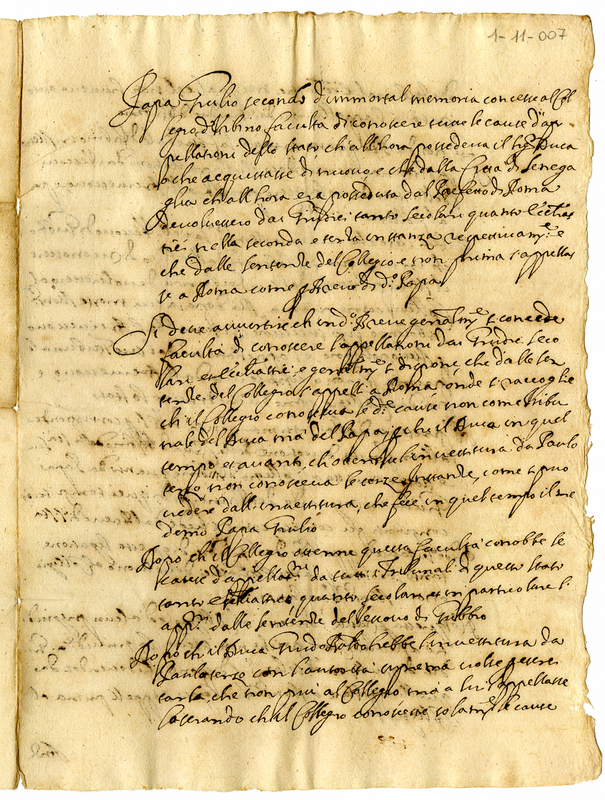 1-11-007
Papa Giulio secondo d'immortal memoria concesse al Col
legio d'Urbino facultà di conoscere tutte le cause d'ap
pellationi dello stato, ch'all'hora possedeva il Duca
o che acquistasse di nuovo, e che dalla Città di Senega
glia ch'all'hora era posseduta dal Prefetto di Roma
devolvessero dai Giudici tanto secolari quanto Ecclias
tici nella seconda e terza instanza respettivamte e
che dalle sentenze del Collegio e non prima s'appellas
se a Roma come p Breve di do Papa
Si deve avvertire ch'in do Breve generalmte si concede
facultà di conoscere l'appellationi dai Giudici seco
lari et ecclesiastici, e generalmte si dispone, che dalle sen
tenze del Collegio s'appelli a Roma onde si raccoglie
ch'il Collegio conosceva le de cause non come Tribu
nale del Duca ma del Papa, il Duca in quel
tempo et avanti, ch'ottenesse l'investitura da Paulo
terzo non conosceva le terze instanze, come si può
vedere dall'investitura, che fece in quel tempo il me
demo Papa Giulio
Dopo ch'il Collegio ottenne questa facultà conobbe le
cause d'appellatni da tutti i Tribunali di questo stato
tanto eccliastici, quanto secolari et in particulare l'
appni dalle sentenze del Vescovo di Gubbio
Dopo ch'il Duca Guido hebbe l'investitura da
Paulo terzo con l'autorità suprema volse
che non più al Collegio ma a lui s'appellasse
lasciando ch'il Collegio conoscesse solamte le cause